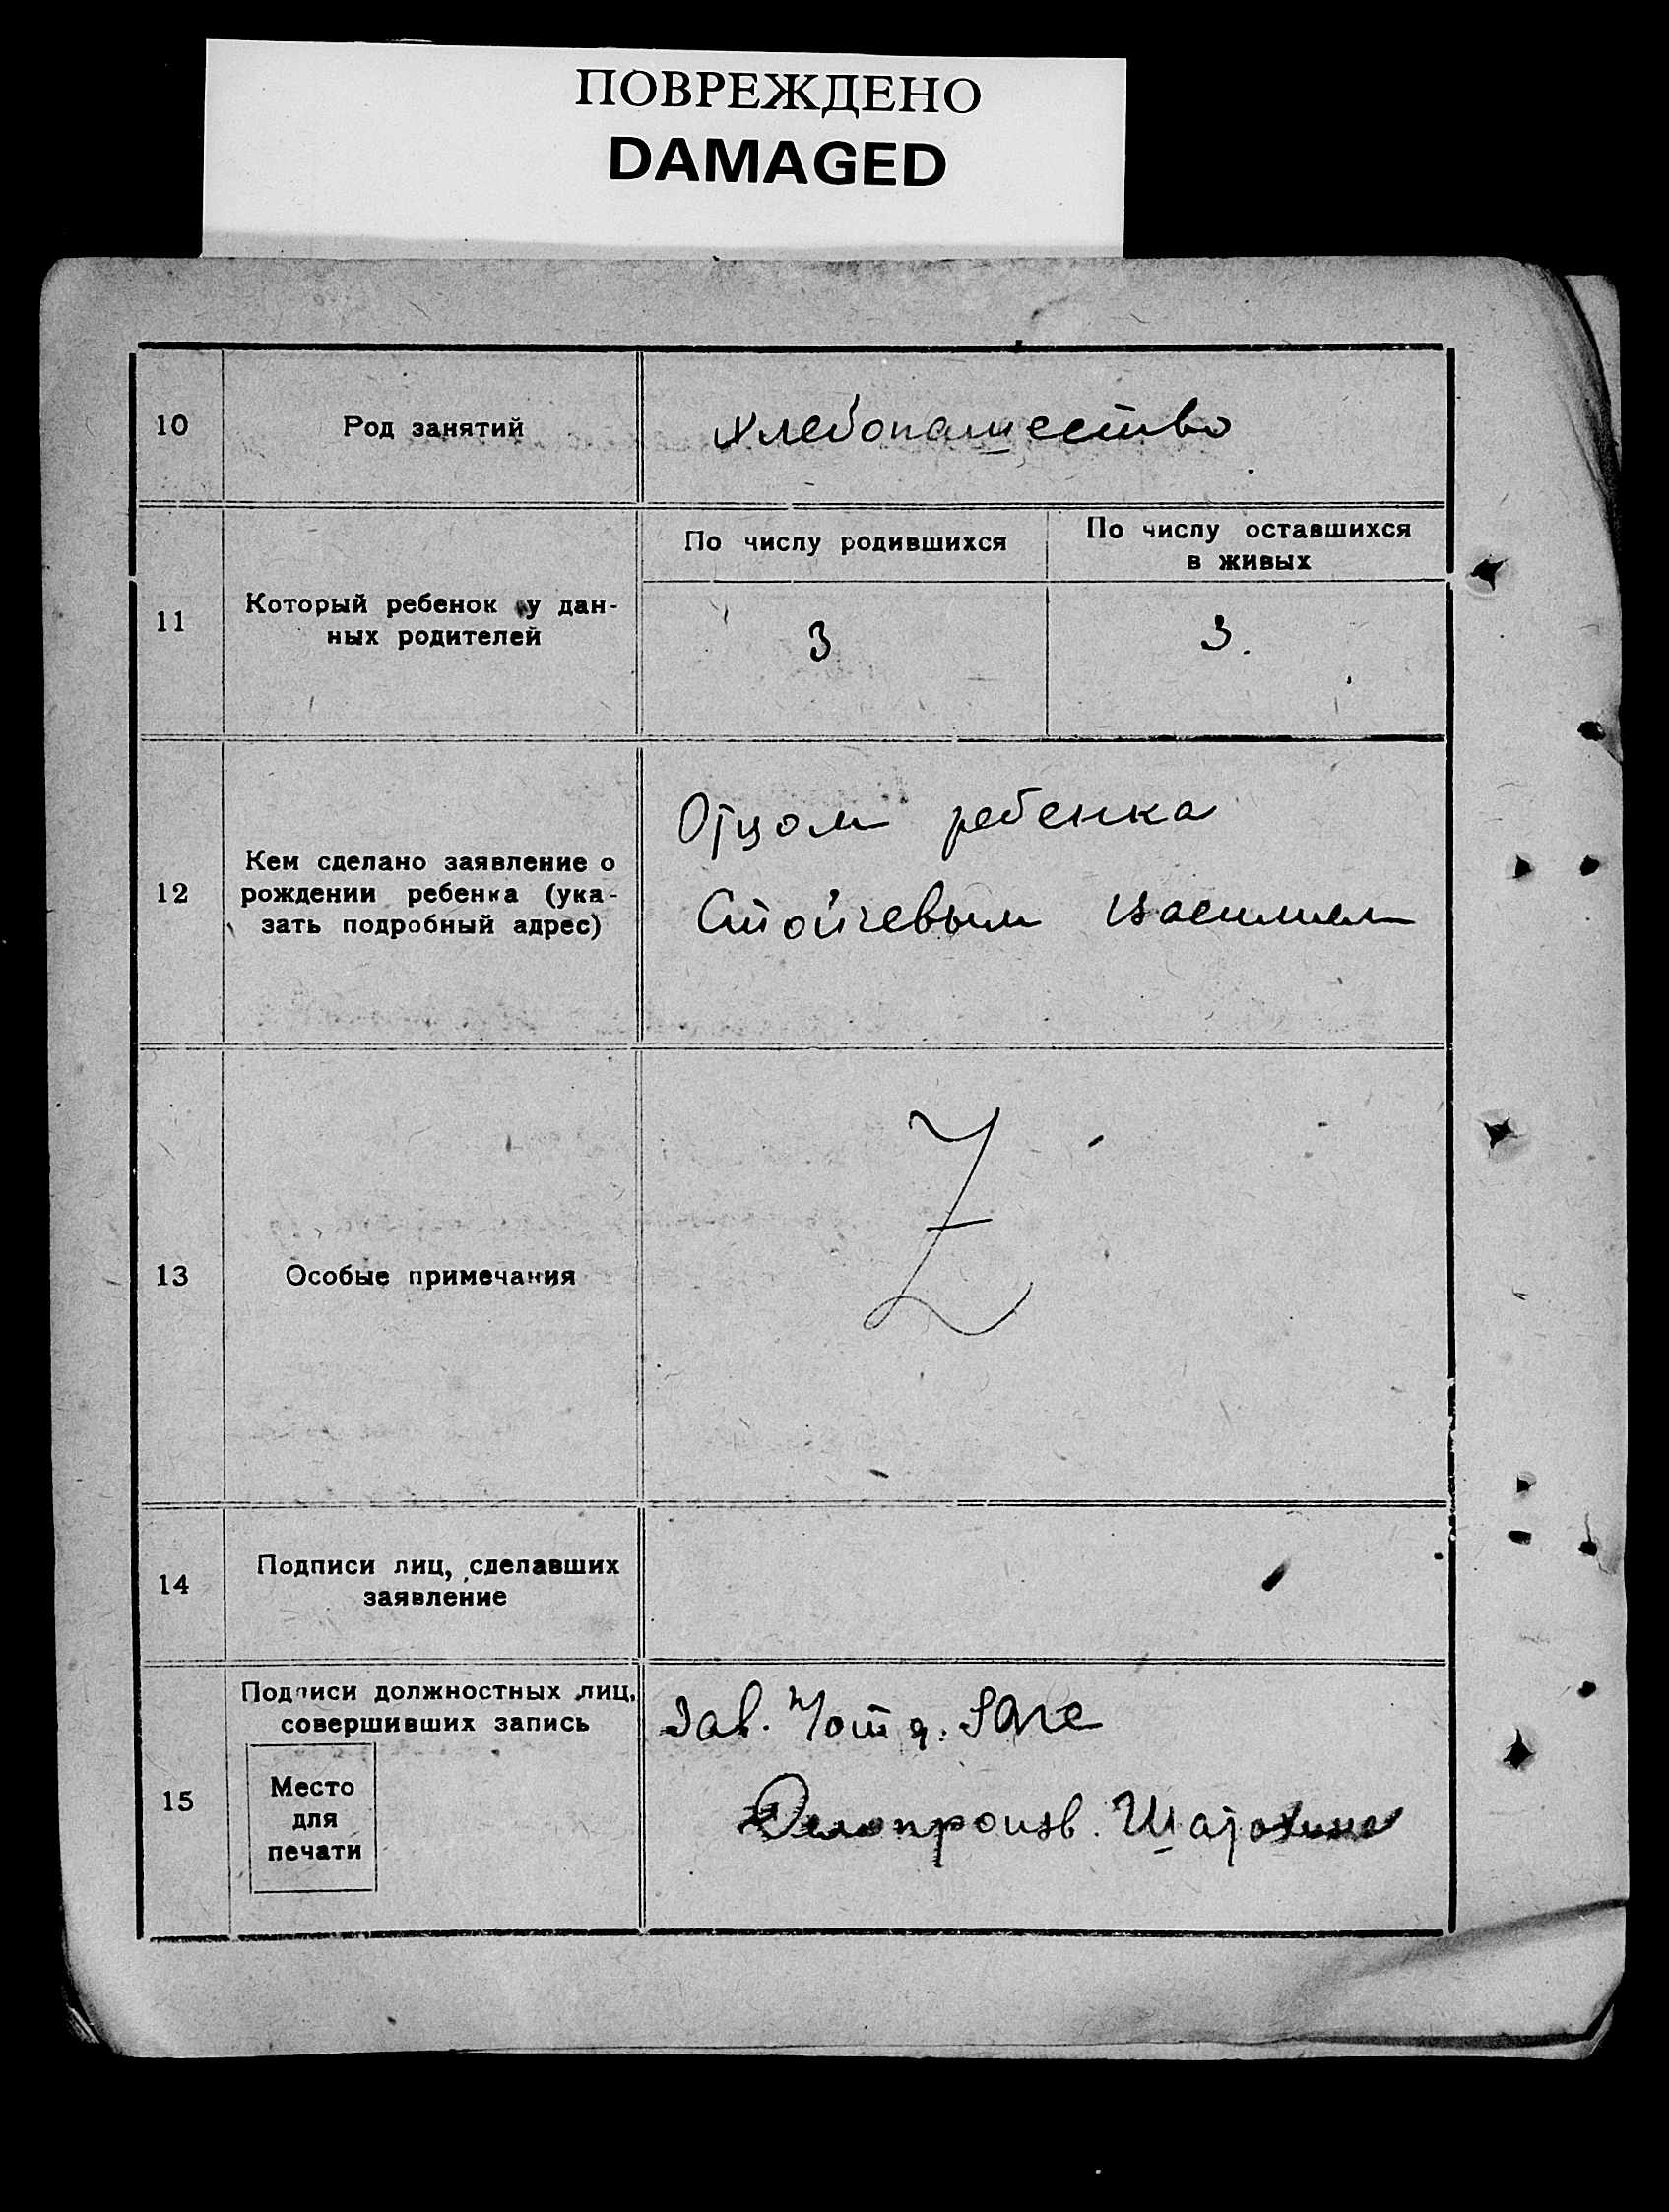 ПОВРЕЖДЕНО
DAMAGED
10
Род занятий
хлебопашество
11
Который ребенок у дан-
ных родителей
По числу родившихся
По числу оставшихся
в живых
3
3.
12
Кем сделано заявление о
рождении ребенка (ука-
зать подробный адрес)
Отцом ребенка
Стойчевым Василием
13
Особые примечания
Z
14
Подписи лиц, сделавших
заявление
15
Подписи должностных лиц,
совершивших запись
Место
для
печати
Зав.
Делопроизв.